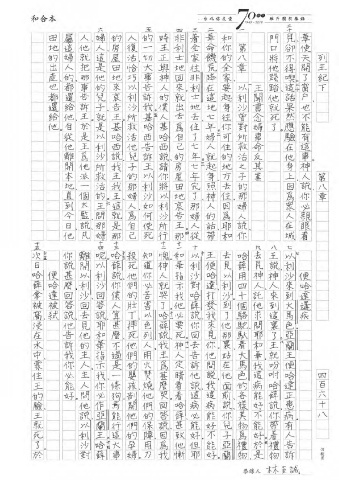 和合本
70
列王記下 第八章 四百六十八
華使天開了窗戶也不能有這事神人說你必親眼看
見卻不得喫這話果然應驗在他身上因為眾人在城
門口將他踐踏他就死了
第八章
以利沙曾對所救活之子的那婦人說你
和你的全家要起身往你可住的地方去住因為耶和
華命饑荒降在這地七年婦人就起身照神人的話帶
著全家往非利士地去住了七年七年完了那婦人從
非利士地回來就出去為自己的房屋田地哀告王那
時王正與神人的僕人基哈西說請你將以利沙所行
的一切大事告訴我基哈西告訴王以利沙如何使死
人復活恰巧以利沙所救活他兒子的那婦人為自己
的房屋田地來哀告王基哈西說我主我王這就是那
婦人這是他的兒子就是以利沙所救活的王問那婦
人他就把那事告訴王於是王為他派一個太監說凡
屬這婦人的都還給他自從他離開本地直到今日他
田地的出產也都還給他
便哈達遘疾
以利沙來到大馬色亞蘭王便哈達正患病有人告訴
王說神人來到這裏了王就吩咐哈薛說你帶著禮物
去見神人託他求問耶和華我這病能好不能好於是
哈薛用四十個駱駝馱著大馬色的各樣美物為禮物
去見以利沙到了他那裏站在他面前說你兒子亞蘭
王便哈達打發我來見你他問說我這病能好不能好
以利沙對哈薛說你回去告訴他說這病必能好但耶
和華指示我他必要死神人定睛看著哈薛甚至他慚
愧神人就哭了哈薛說我主為甚麼哭回答說因為我
知道你必苦害以色列人用火焚燒他們的保障用刀
殺死他們的壯丁摔死他們的嬰孩剖開他們的孕婦
哈薛說你僕人算甚麼不過是一條狗焉能行這大事
呢以利沙回答說耶和華指示我你必作亞蘭王哈薛
離開以利沙回去見他的主人主人問他說以利沙對
你說甚麼回答說他告訴我你必能好
便哈達被弒
次日哈薛拿被窩浸在水中蒙住王的臉王就死了於